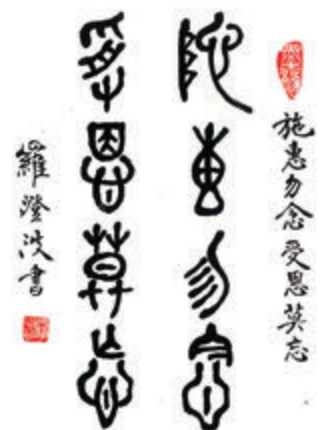 施惠勿念受恩莫忘
施惠勿念
受恩莫忘
羅澄波書